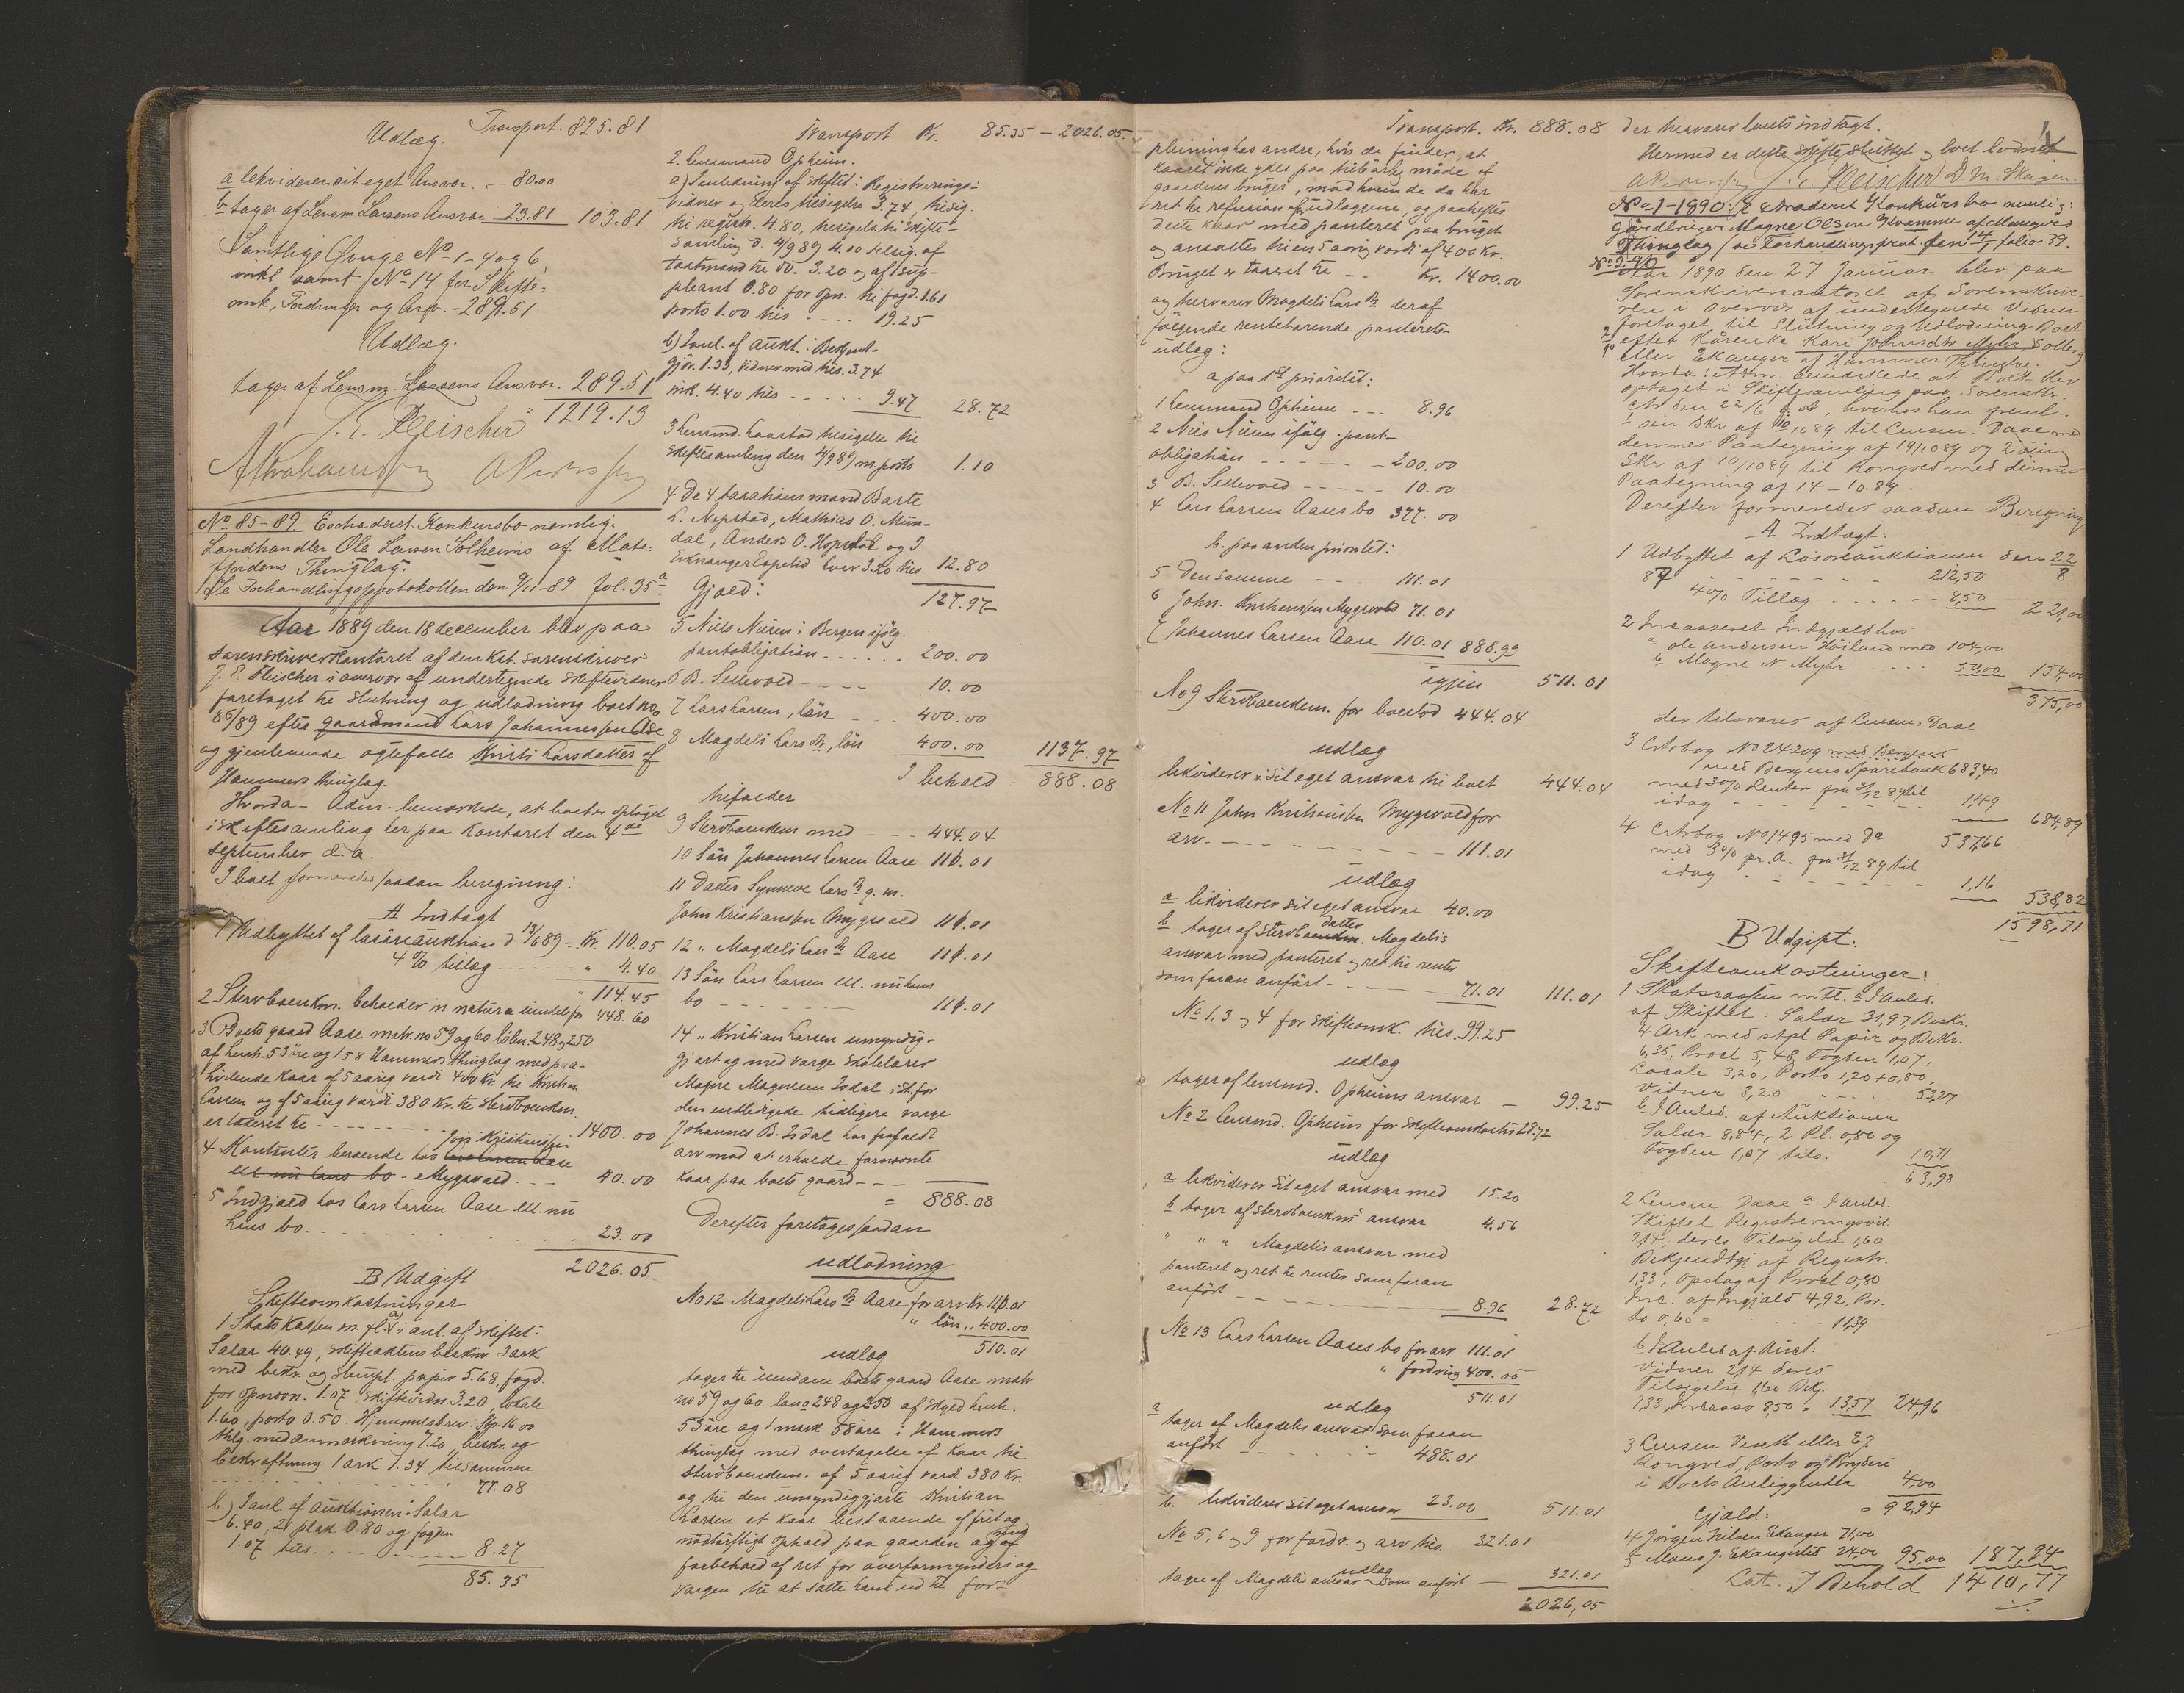 Transport. 825.81
Udlæg.
a lekviderer sit eget Ansvar. . - 80.00
b tager af Lensm Larsens Ansvar 23.81 103.81
Samtlige Øvrige No 1-4 og 6
inkl samt No 14 for Skifte-
omk, Fordringer og Arv. - 289.51
Udlæg.
tager af Lensm. Larsens Ansvar. 289.51
1219.13
J. E. Fleischer
Abrahamsen A Pedersen
No 85-89 Extraderet Konkursbo nemlig:
Landhandler Ole Larsen Solheims af Mats-
fjordens Thinglag.
Se Forhandlingsprotokollen den 9/11-89 fol. 35 a
Aar 1889 den 18 december blev paa
sorenskriverkontoret af den kst. sorenskriver
J. E. Fleischer i overvær af undertegnede skiftevidner
foretaget til slutning og udlodning boet no
86/89 efter gaardmand Lars Johannessen Aase
og gjenlevende ægtefælle Kristi Larsdatter af
Hammers thinglag.
Hvorda - Adm. bemærkede, at boet er optaget
i skiftesamling her paa kontoret den 4de
september d. a.
I boet formeredes saadan beregning:
A Indtægt
1 Udbyttet af løsøreauktion d 13/6 89 - Kr. 110.05
4 % tillæg - - - - " 4.40
" 114.45
2 Stervboenkm. beholder in natura iindelse for 448.60
3 Boets gaard Aase matr. no 59 og 60 løben. 248, 250
af henh. 53 öre og 1.58 Hammers thinglag med paa-
hvilende kaar af 5 aarig værdi 400 Kr. til Kristian
Larsen og af 5 aarig værdi 380 Kr. til Stervboenkm.
er taxeret til - - - - - 1400.00
4 Kontanter beroende hos John Kristiansen
ell nu hans bo - Mygsvold - - - 40.00
5 Indgjæld hos Lars Larsen Aase ell. nu
hans bo. - - - - - 23.00
2026.05
B Udgift
Skifteomkostninger
1 Statskassen m. fl. a) i anl. af skiftet:
Salær 40.49, skifteaktens beskriv 3 ark
med bekr. og stempl. papir 5.68, fogd.
for opnævn. 1.07, skiftevidn. 3.20, lokale
1.60, porto 0.50. Hjemmelsbrev: Stp. 16.00
thlg. med anmærkning 7.20, beskr. og
bekræftning 1 ark 1.34 tilsammen
- - - - - 77.08
b.) I anl. af auktionen: Salær
6.40, 2 plak. 0.80 og fogden
1.07 tils. - - - - 8.27
85.35
Transport Kr. 85.35 - 2026.05
2. Lensmand Opheim.
a) I anledning af skiftet: Registrerings-
vidner og deres tilsigelse 3.74, tilsig.
til registr. 4.80, tilsigelse til skifte-
samling d. 4/9 89 4.00 tilsig. af
taxtmænd til do. 3.20 og af 1 sup-
pleant 0.80 for opn. til fogd. 1.61
porto 1.00 tils - - - - 19.25
b) I anl. af aukt.: Bekjendt-
gjör. 1.33, vidner med tils. 3.74
ink. 4.40 tils - - - - 9.47 28.72
3 Lensmd. Kaarstad tilsigelse til
skiftesamling den 4/9 89 m porto 1.10
4 De 4 taxationsmænd Barte
L. Nepstad, Mathias O. Mun-
dal, Anders O. Hopsdal og I
Eiknanger Espelid hver 3.20 tils 12.80
127.97
Gjæld:
5 Niels Nilsen i Bergen ifølg.
pantobligation - - - - 200.00
6 B. Sellevold - - - - 10.00
7 Lars Larsen, lön - - - 400.00
8 Magdeli Lars dtr, lön 400.00 1137.97
I behold 888.08
tilfalder
9 Stervboenkem med - - - 444.04
10 Sön Johannes Larsen Aase 111.01
11 Datter Synneve Lars dtr g. m.
John Kristianssen Mygsvold 111.01
12 " Magdeli Lars dtr Aase 111.01
13 Sön Lars Larsen ell. nu hans
bo - - - - - 111.01
14 " Kristian Larsen umyndig-
gjort og med værge skolelærer
Magne Magnesen Isdal istf. for
den entledigede tidligere værge
Johannes B. Isdal har frafaldt
arv mod at erholde fornævnte
kaar paa boets gaard - - -
= 888.08
Derefter foretoges saadan
udlodning
No 12 Magdeli Lars dtr Aase for arv Kr. 111.01
" lön " 400.00
510.01
udlæg
tager til eiendom boets gaard Aase matr.
no 59 og 60 lbno 248 og 250 af skyld henh.
53 öre og 1 mark 58 öre i Hammers
thinglag med overtagelse af kaar til
stervboenkem. af 5 aarig værdi 380 Kr.
og til den umyndiggjorte Kristian
Larsen et kaar bestaaende af frit og
nödtörftigt ophold paa gaarden og af
forbehold af ret for overformynderi og
værgen til at sætte ham ud til for-
Transport. Kr. 888.08
pleining hos andre, hvis de finder, at
kaaret ikke ydes paa tilbørlig maade af
gaardens bruger, mod hvem de da har
ret til refusion af udlæggene, og paaheftes
dette kaar med panteret paa bruget
og ansættes til en 5 aarig værdi af 400 Kr.
Bruget er taxeret til - - Kr. 1400.00
og hersvarer Magdeli Lars dtr deraf
følgende rentebærende panterets-
udlæg:
a paa 1st prioritet:
1 Lensmand Opheim - - - 8.96
2 Niels Nilsen ifølg. pant-
obligation - - - - - 200.00
3 B. Sellevold - - - - - 10.00
4 Lars Larsen Aases bo 377.00
b. paa anden prioritet:
5 Den samme - - - 111.01
6 John. Kristiansen Mygsvold 71.01
7 Johannes Larsen Aase 110.01 888.99
igjen 511.01
No 9 Stervboenkem. for boeslod 444.04
udlæg
lekviderer sit eget ansvar til boet 444.04
No 11 John Kristiansen Mygsvold for
arv. - - - - - 111.01
udlæg
a lekviderer sit eget ansvar 40.00
b tager af datter Magdelis
ansvar med panteret og ret til renter
som foran anført - - - - 71.01 111.01
No 1. 3 og 4 for skifteomk. tils. 99.25
udlæg
tager af lensmd. Opheims ansvar - 99.25
No 2 Lensmd. Opheim for skifteomkostn 28.72
udlæg
a lekviderer sit eget ansvar med 15.20
b tager af stervboenkms ansvar 4.56
" " " Magdelis ansvar med
panteret og ret til renter som foran
anført - - - - - 8.96 28.72
No 13 Lars Larsen Aases bo for arv 111.01
" fordring 400.00
511.01
udlæg
a tager af Magdelis ansvar som foran
anført - - - - 488.01
b. lekviderer sit eget ansvar 23.00 511.01
No 5, 6 og 9 for fordr. og arv tils. 321.01
udlæg
tager af Magdelis ansvar som anført - 321.01
2026,05
4
der hersvarer boets indtægt.
Hermed er dette skifte sluttet og boet lodnet
A Pedersen J. E. Fleischer D M. Skagen.
No 1-1890. Extraderet Konkursbo nemlig:
Gårdbruger Magne Olsen Kvamme af Mangers
Thinglag / se Forhandlingsprot. den 14/1 folio 39.
No 2-90
Aar 1890 den 27 Januar blev paa
Sorenskriverkontoret af Sorenskrive-
ren i Overvær af undertegnede Vidner
foretaget til Slutning og Udlodning Boet
2/90 efter Kårenke Kari Johnsdtr Myhr Solberg
eller Ekanger af Hammer Thinglag.
Hvorda: Adm. bemærkede at Boet blev
optaget i Skiftesamling paa Sorenskr.
Ctr den 22/6 f. A, hvorhos han freml.
1 sin Skr af 10/10 89 til Lensm. Daae med
dennes Paategning af 19/10 89 og 2 sin
Skr af 10/10 89 til Kongsvold med dennes
Paategning af 14-10.89.
Derefter formeredes saadan Beregning
A Indtægt:
1 Udbyttet af Løsøreauktionen den 22/8
87 - - - - - 212,50
4 % Tillæg - - - - 8,50 221,00
2 Incasseret Indgjæld hos
a ole Andersen Høiland med 104,00
b Magne N. Myhr - - - 50,00 154,00
375,00
der tilsvares af Lensm. Daae
3 Ctrbog No 24209
med Bergens Sparebank 683,40
med 3 % Renter fra 31/12 89 til
idag - - - - 1,49 684,89
4 Ctrbog No 1495 med Do 537,66
med 3 % pr. A. fra 31/12 89 til
idag - - - - 1,16 538,82
1598,71
B Udgift:
Skifteomkostninger:
1 Statscassen m fl. a I Anled.
af Skiftet: Salær 31,97, Beskr.
4 Ark med stpl Papir og Bekr.
6,35, Procl 5,48, Fogden 1,07,
Locale 3,20, Porto 1,20 + 0,80,
Vidner 3,20 - - - - 53,27
b I Anled. af Auktionen
Salær 8,84, 2 Pl. 0,80 og
Fogden 1,07 tils. 10,71
63,98
2 Lensm Daae a I Anled.
Skiftet Registreringsvid.
2,14, deres Tilsigelse 1,60
Bekjendtgj af Registr.
1,33, Opslag af Procl 0,80
Inc. af Ingjæld 4,92, Por-
to 0,60 = - - - 11,39
b I Anled af Auct:
Vidner 2,14 deres
Tilsigelse 1,60 Bekj.
1,33, Incasso 8,50 = 13,57 24,96
3 Lensm Veseth eller Ef
Kongsvold, Porto og Bryderi
i Boets Anliggender 4,00
= 92,94
Gjæld:
4 Jørgen Nilsen Ekanger 71,00
5 Mons J. Ekangerlid 24,00 95,00 187,94
Lat. I Behold 1410,77